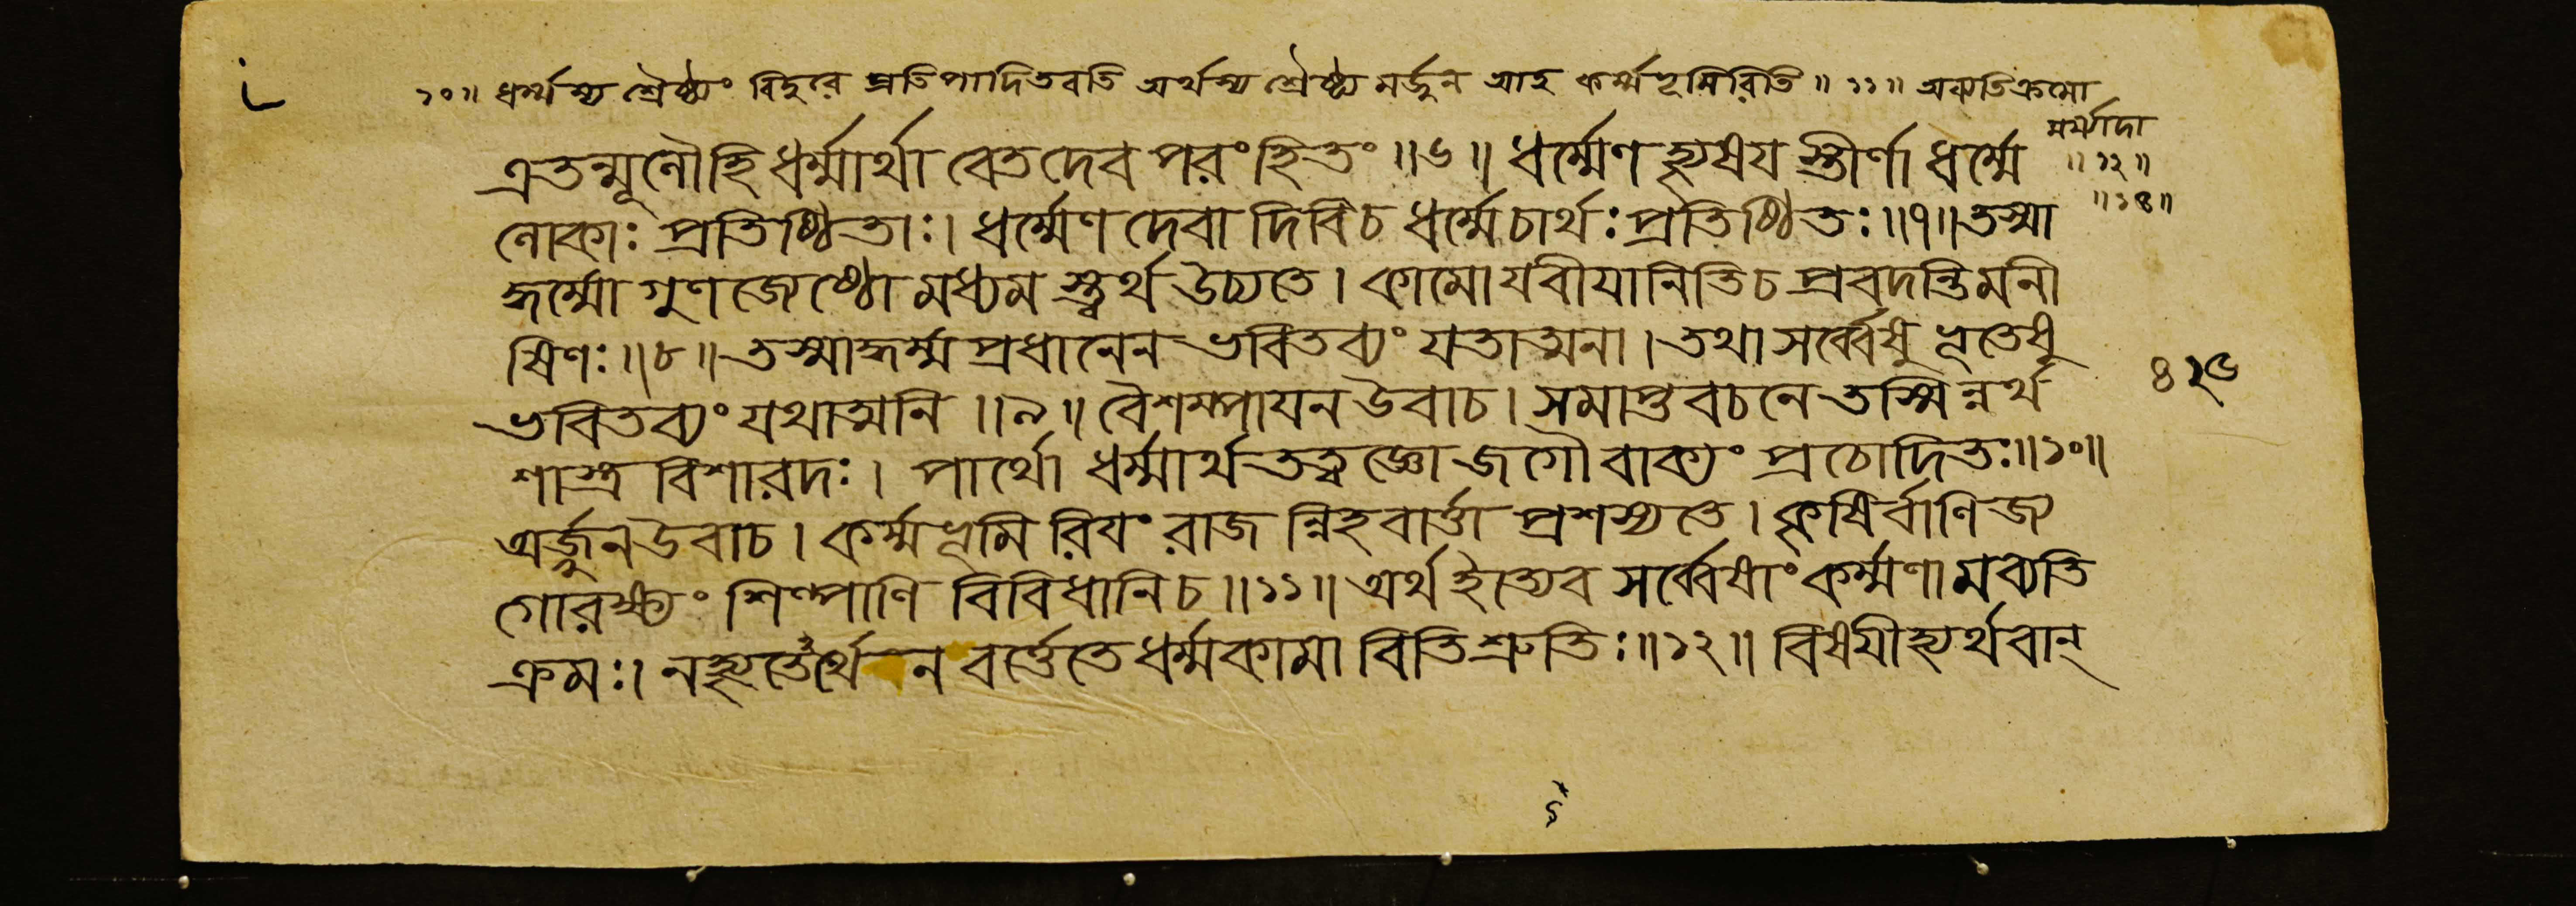 ১০॥ ধর্ম্মস্য শ্রৈষ্ঠ্যং বিদুরে প্রতিপাদিতবতি অর্থস্য শ্রৈষ্ঠ্য মর্জুন আহ কর্ম্মভূমিরিতি॥ ১১॥ অব্যতিক্রমো
মর্য্যাদা
॥১২॥
॥১৩॥
এতন্মূলৌহি ধর্ম্মার্থা বেতদেব পরং হিতং॥৬॥ ধর্ম্মেণ হ্যৃষয় স্তীর্ণা ধর্ম্মে
লোকাঃ প্রতিষ্ঠিতাঃ। ধর্ম্মেণ দেবা দিবিচ ধর্ম্মেচার্থঃ প্রতিষ্ঠিতঃ॥৭॥তস্মা
দ্ধর্ম্মো গুণজেষ্ঠো মধ্যম স্ত্বর্থ উচ্যতে। কামোযবীযানিতিচ প্রবদন্তিমনী
ষিণঃ॥৮॥ তস্মাদ্ধর্ম্ম প্রধানেন ভবিতব্যং যতাত্মনা। তথা সর্ব্বেষু ভূতেষু
ভবিতব্যং যথাত্মনি॥৯॥ বৈশম্পাযন উবাচ। সমাপ্তবচনে তস্মিন্নর্থ
৪২৬
শাস্ত্র বিশারদঃ। পার্থো ধর্ম্মার্থতত্ত্বজ্ঞো জগৌ বাক্যং প্রচোদিতঃ॥১০॥
অর্জ্জুনউবাচ। কর্ম্মভূমি রিযং রাজ ন্নিহবার্ত্তা প্রশস্যতে। কৃষির্বাণিজ্য
গোরক্ষ্যং শিল্পাণি বিবিধানিচ॥১১॥ অর্থ ইত্যেব সর্ব্বেষাং কর্ম্মণা মব্যতি
ক্রমঃ। নহ্যৃতেঽর্থেন বর্ত্তেতে ধর্ম্মকামা বিতিশ্রুতিঃ॥১২॥ বিষযীহ্যর্থবান্